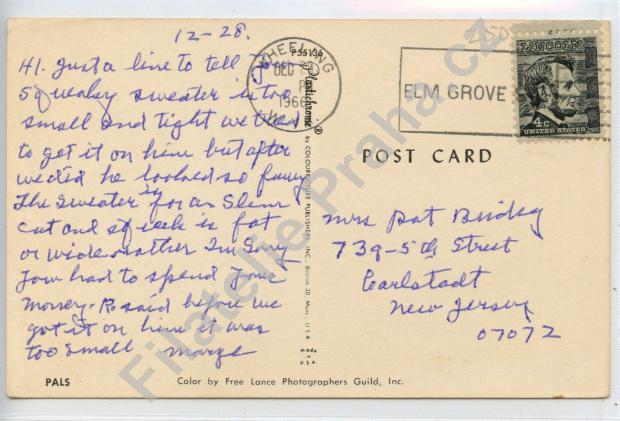 12-28.
Hi. Just a line to tell you
Squeaky sweater is too
small and tight we tried
to get it on him but after
we did he looked so funny
The sweater is for a Slim
cut and Squeek is fat
or wide rather I'm Sorry
you had to spend your
money. R said before we
got it on him it was
too small Marge
PALS
P55138
Plastichrome ®
by COLOURPICTURE PUBLISHERS, INC. Boston 30, Mass. U.S.A.
MADE U.S.A.
WHEELING
DEC 29
PM
1966
W.VA.
ELM GROVE
LINCOLN
4c
UNITED STATES
POST CARD
Mrs Pat
739-5th Street
Carlstadt
New Jersey
07072
Color by Free Lance Photographers Guild, Inc.
Filatelie Praha cz